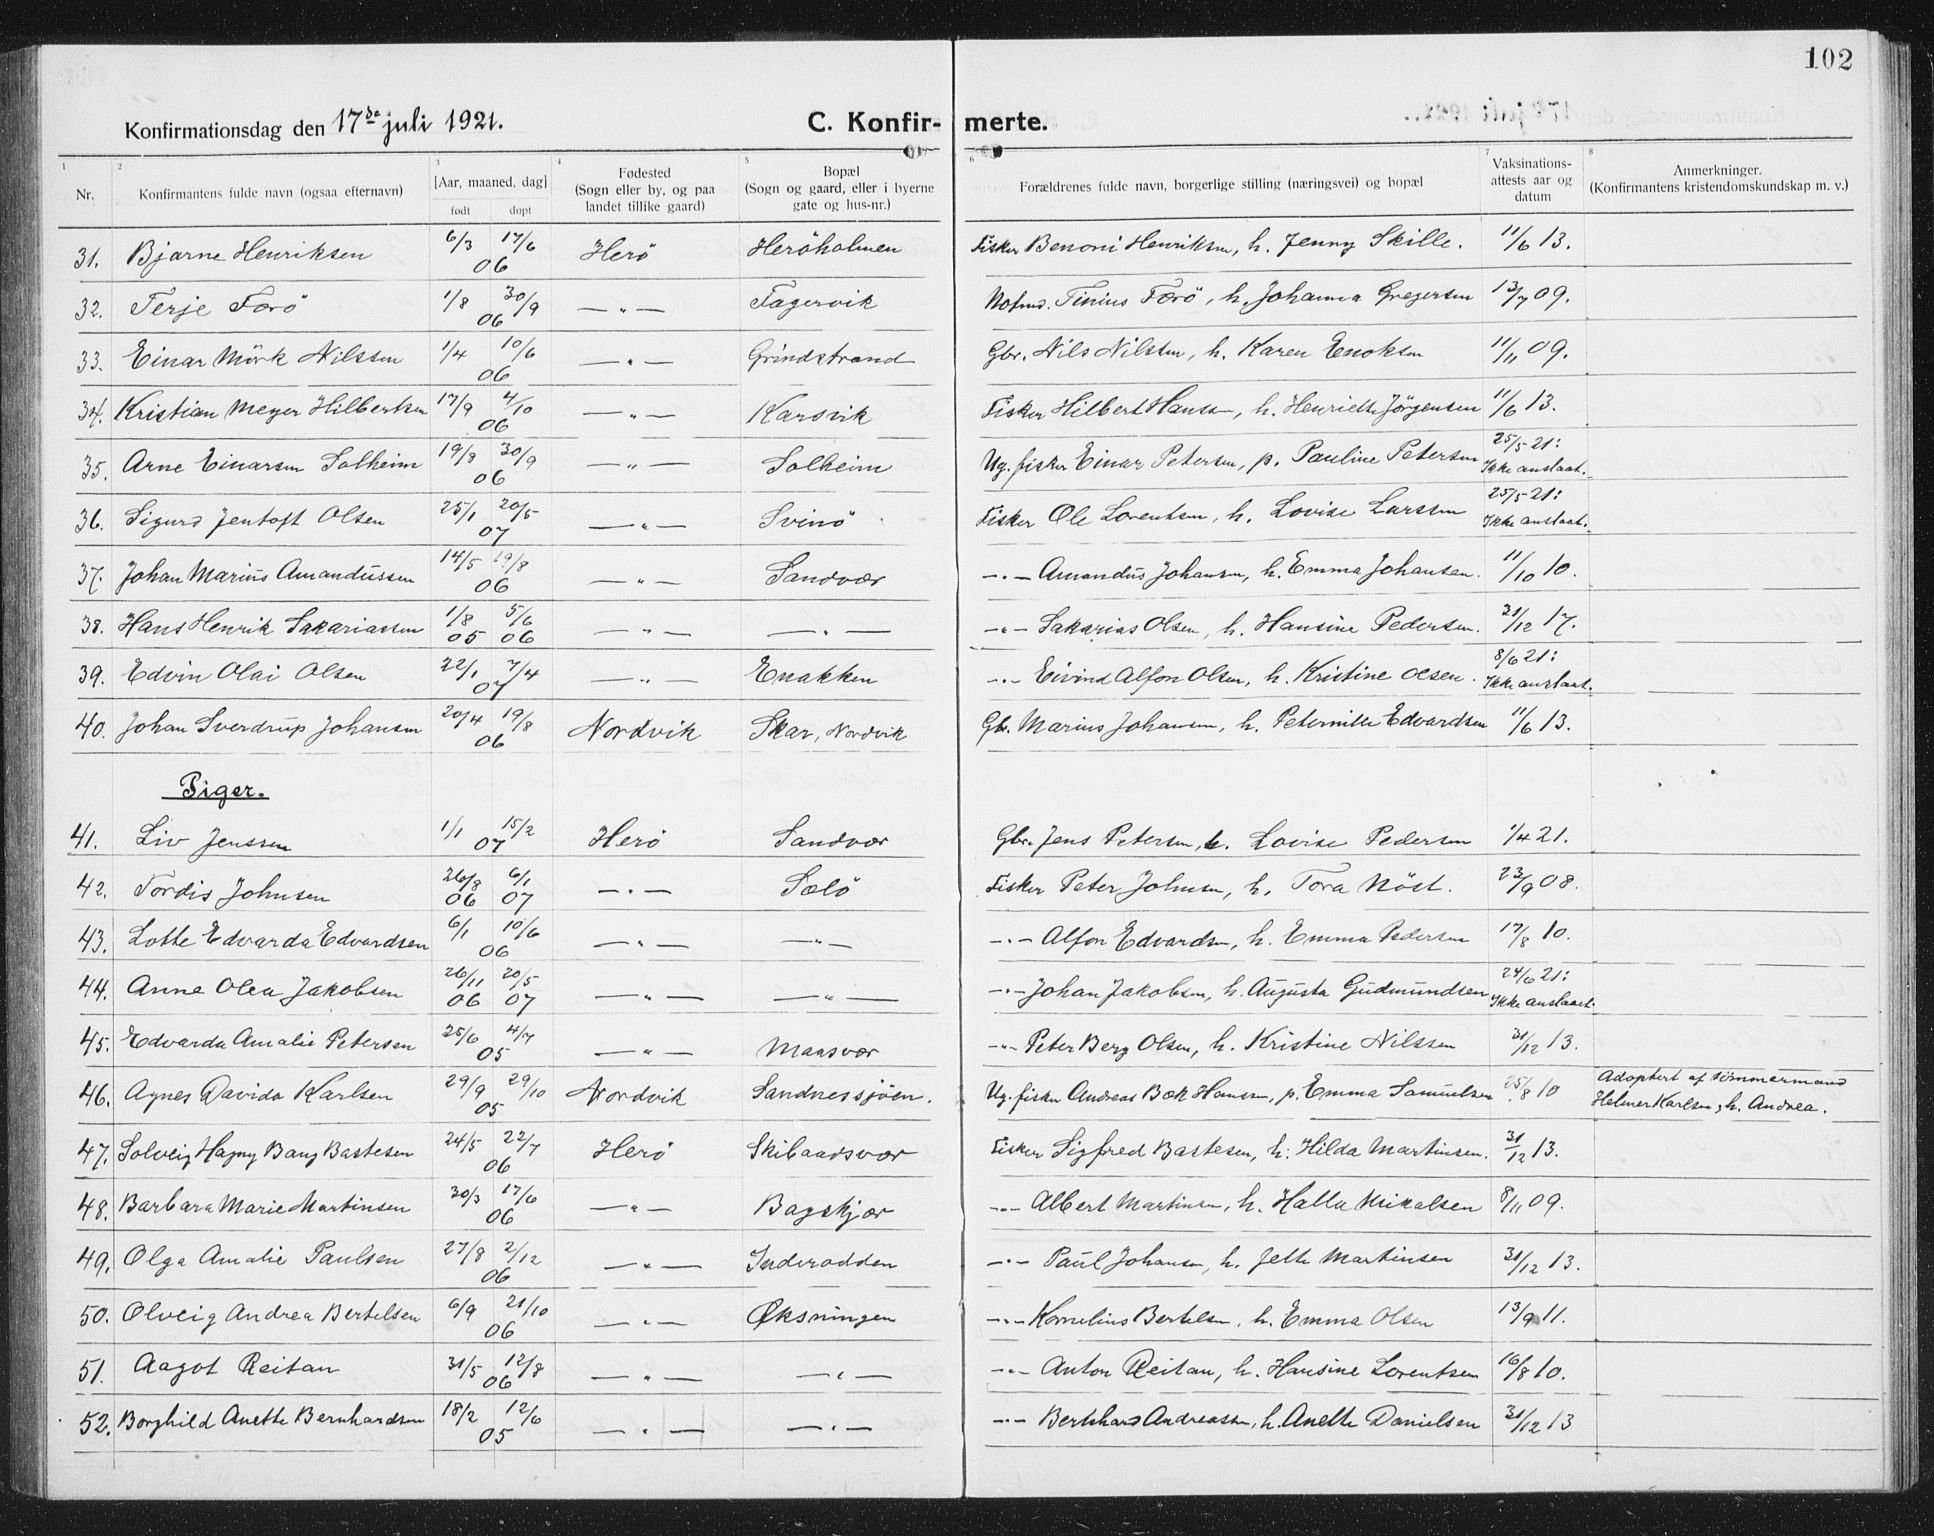 102
Konfirmationsdag den 17de juli 1921. C. Konfir- merte.
1 2 3 4 5 6 7 8
Nr. Konfirmantens fulde navn (ogsaa efternavn) [Aar, maaned, dag] født døpt Fødested (Sogn eller by, og paa landet tillike gaard) Bopæl (Sogn og gaard, eller i byerne gate og hus-nr.) Forældrenes fulde navn, borgerlige stilling (næringsvei) og bopæl Vaksinations-attests aar og datum Anmerkninger. (Konfirmantens kristendomskundskap m. v.)
31. Bjarne Henriksen 6/3 17/6 06 Herö Heröholmen Fisker Benoni Henriksen, h. Jenny Skille. 11/6 13.
32. Terje Færö 1/8 30/9 06 —"— Fagervik Tinius Færö, h. Johanna Gregersen 13/7 09.
33. Einar Mörk Nilssen 1/4 10/6 06 —"— Grindstrand Gbr. Nils Nilssen, h. Karen Enoksen 11/11 09.
34. Kristian Meyer Hilbertsen 17/9 4/10 06 —"— Karsvik Fisker Hilbert Hansen, h. Henriette Jörgensen 11/6 13.
35. Arne Einarsen Solheim 19/8 30/9 06 —"— Solheim Ug. fisker Einar Petersen, p. Pauline Petersen 25/5 21: Ikke anslaat.
36. Sigurd Jentoft Olsen 25/1 20/5 07 —"— Svinö Fisker Ole Lorentsen, h. Lovise Larssen 25/5 21: Ikke anslaat.
37. Johan Marius Amandussen 14/5 19/8 06 —"— Sandvær —"— Amandus Johansen, h. Emma Johansen. 11/10 10.
38. Hans Henrik Sakariassen 1/8 05 5/6 06 —"— —"— —"— Sakarias Olsen, h. Hansine Pedersen. 31/12 17.
39. Edvin Olai Olsen 22/1 7/4 07 —"— Enakken —"— Eivind Alfon Olsen, h. Kristine Olsen. 8/6 21: Ikke anslaat.
40. Johan Sverdrup Johansen 20/4 19/8 06 Nordvik Skar, Nordvik Gbr. Marius Johansen, h. Petemille Edvardsen 11/6 13.
Piger.
41. Liv Jenssen 1/1 15/2 07 Herö Sandvær Gbr. Jens Petersen, h. Lovise Pedersen 1/4 21.
42. Tordis Johnsen 26/8 06 6/1 07 —"— Sælö Fisker Peter Johnsen, h. Tora Nöst. 23/9 08.
43. Lotte Edvarda Edvardsen 6/1 10/6 06 —"— —"— —"— Alfon Edvardsen, h. Emma Pedersen 17/8 10.
44. Anne Olea Jakobsen 26/11 06 20/5 07 —"— —"— —"— Johan Jakobsen, h. Augusta Gudmundsen 24/6 21: Ikke anslaat.
45. Edvarda Amalie Petersen 25/6 4/7 05 —"— Maasvær —"— Peter Berg Olsen, h. Kristine Nilssen 31/12 13.
46. Agnes Davida Karlsen 29/9 29/10 05 Nordvik Sandnessjöen. Ug. fisker Andreas Bæk Hanssen, p. Emma Samuelsen 25/8 10 Adoptert af tömmermand Helmer Karlsen, h. Andrea.
47. Solveig Hagny Bang Bastesen 24/5 22/7 06 Herö Skibaadsvær Fisker Sigfred Bastesen, h. Hilda Martinsen. 31/12 13.
48. Barbara Marie Martinsen 30/3 17/6 06 —"— Bagskjær —"— Albert Martinsen, h. Halla Mikalsen 8/11 09.
49. Olga Amalie Paulsen 27/8 2/12 06 —"— Inderodden —"— Paul Johansen, h. Jette Martinsen 31/12 13.
50. Olveig Andrea Bertelsen 6/9 21/10 06 —"— Øksningen —"— Kornelius Bertelsen, h. Emma Olsen 13/9 11.
51. Aagot Reitan 31/5 12/8 06 —"— —"— —"— Anton Reitan, h. Hansine Lorentsen 16/8 10.
52. Borghild Anette Bernhardsen 18/2 12/6 05 —"— —"— —"— Bernhard Andreassen, h. Anette Danielsen 31/12 13